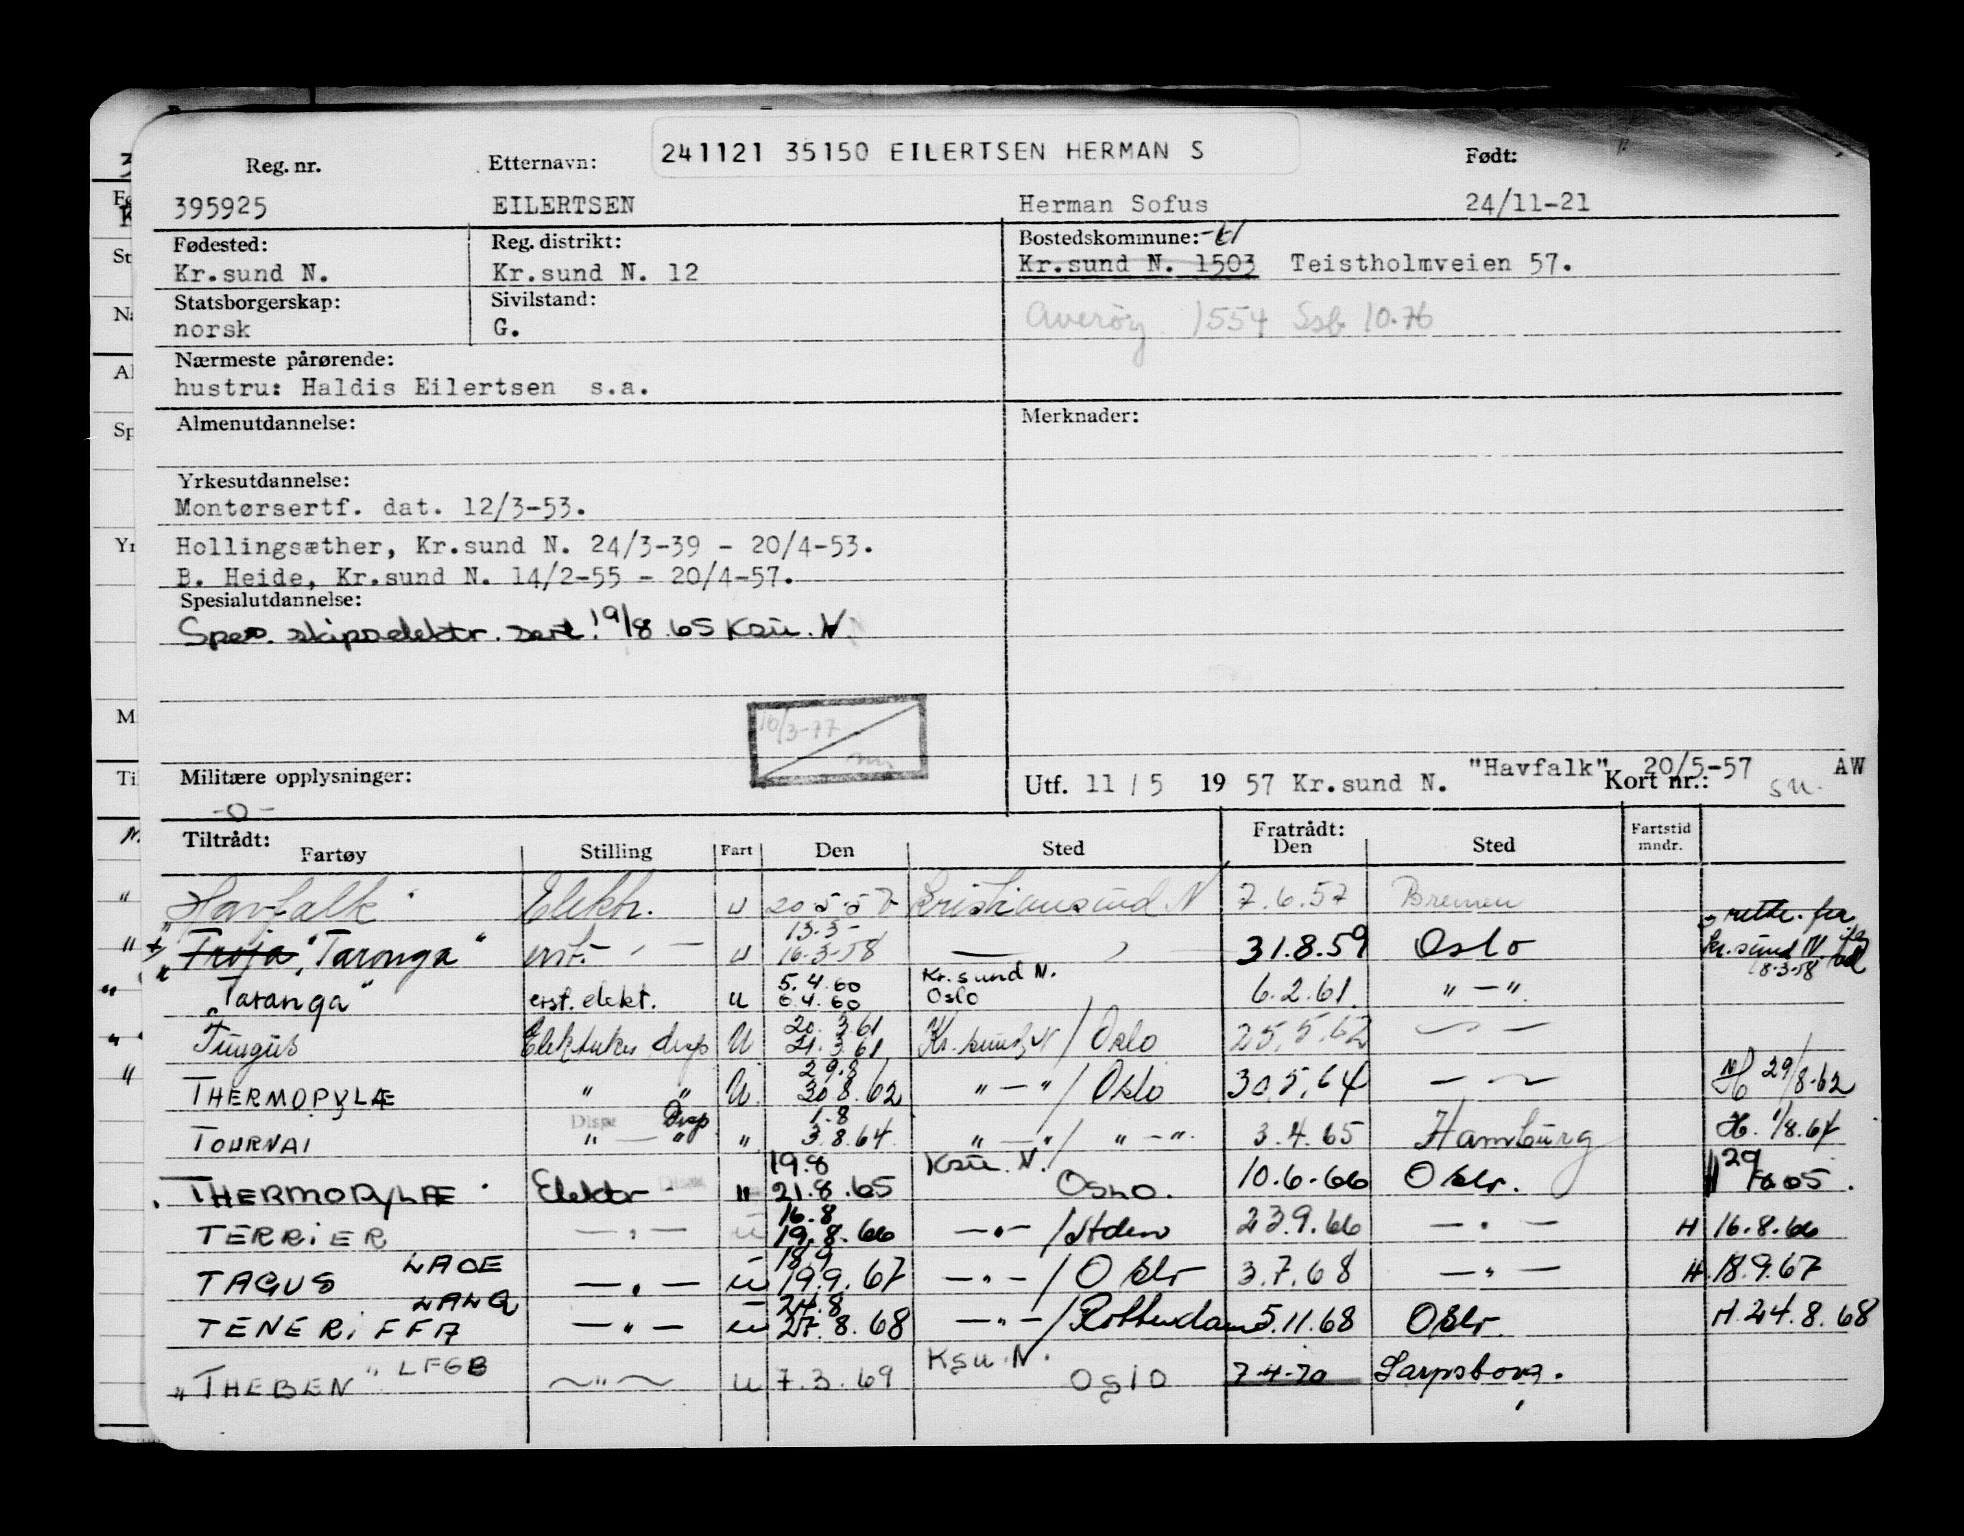 241121 35150 EILERTSEN HERMAN S
Reg. nr. Etternavn: Født:
395925 EILERTSEN Herman Sofus 24/11-21
Fødested: Reg. distrikt: Bostedskommune:
Kr.sund N. Kr.sund N. 12 Kr.sund N. 1503 Teistholmveien 57.
Statsborgerskap: Sivilstand:
norsk G. Averøy 1554 Ssb 10.76
Nærmeste pårørende:
hustru: Haldis Eilertsen s.a.
Almenutdannelse: Merknader:
Yrkesutdannelse:
Montørsertf. dat. 12/3-53.
Hollingsæther, Kr.sund N. 24/3-39 - 20/4-53.
B. Heide, Kr.sund N. 14/2-55 - 20/4-57.
Spesialutdannelse:
Spes. skipselektr. sert. 19/8.65 Ksu. N.
10/3-77
Militære opplysninger:
-0-
"Havfalk" 20/5-57 AW
Utf. 11 / 5 19 57 Kr.sund N. Kort nr.: su.
Tiltrådt: Fratrådt: Fartstid
Fartøy Stilling Fart Den Sted Den Sted mndr.
Havfalk Elektr. u 20.5.57 Kristiansund N 7.6.57 Bremen
13.3-
"Troja "Taronga" u 16.3-58 31.8.59 Oslo Kr.sund N.
18.3.58
5.4.60 Kr.sund N.
"Taranga" erst. elekt. u 6.4.60 Oslo 6.2.61 " — "
20.3.61
Tungus Elektriker disp U 21.3.61 Kr.sund N / Oslo 25.5.62 — " —
29.8
THERMOPYLÆ " " U 30.8.62 " — " / Oslo 30.5.64 — " — 29/8-62
Disp Disp 1.8
TOURNAI " — " " 3.8.64 " — " / " — " 3.4.65 Hamburg H. 1/8.64
19.8 Ksu. N. 29
THERMOPYLÆ Elektr " 21.8.65 OSLO. 10.6-66 Oslo.
16.8
TERRIER — " — u 19.8.66 — " — / Aden 23.9.66 — " — H 16.8.66
LAOE 18.9
TAGUS — " — u 19.9.67 — " — / Oslo 3.7.68 — " — H.18.9.67
LALQ 24.8
TENERIFFA — " — u 27.8.68 — " — / Rotterdam 5.11.68 Oslo. H.24.8.68
" LFGB Ksu. N.
"THEBEN — " — u 7.3.69 Oslo 7-4-70 Sarpsborg.